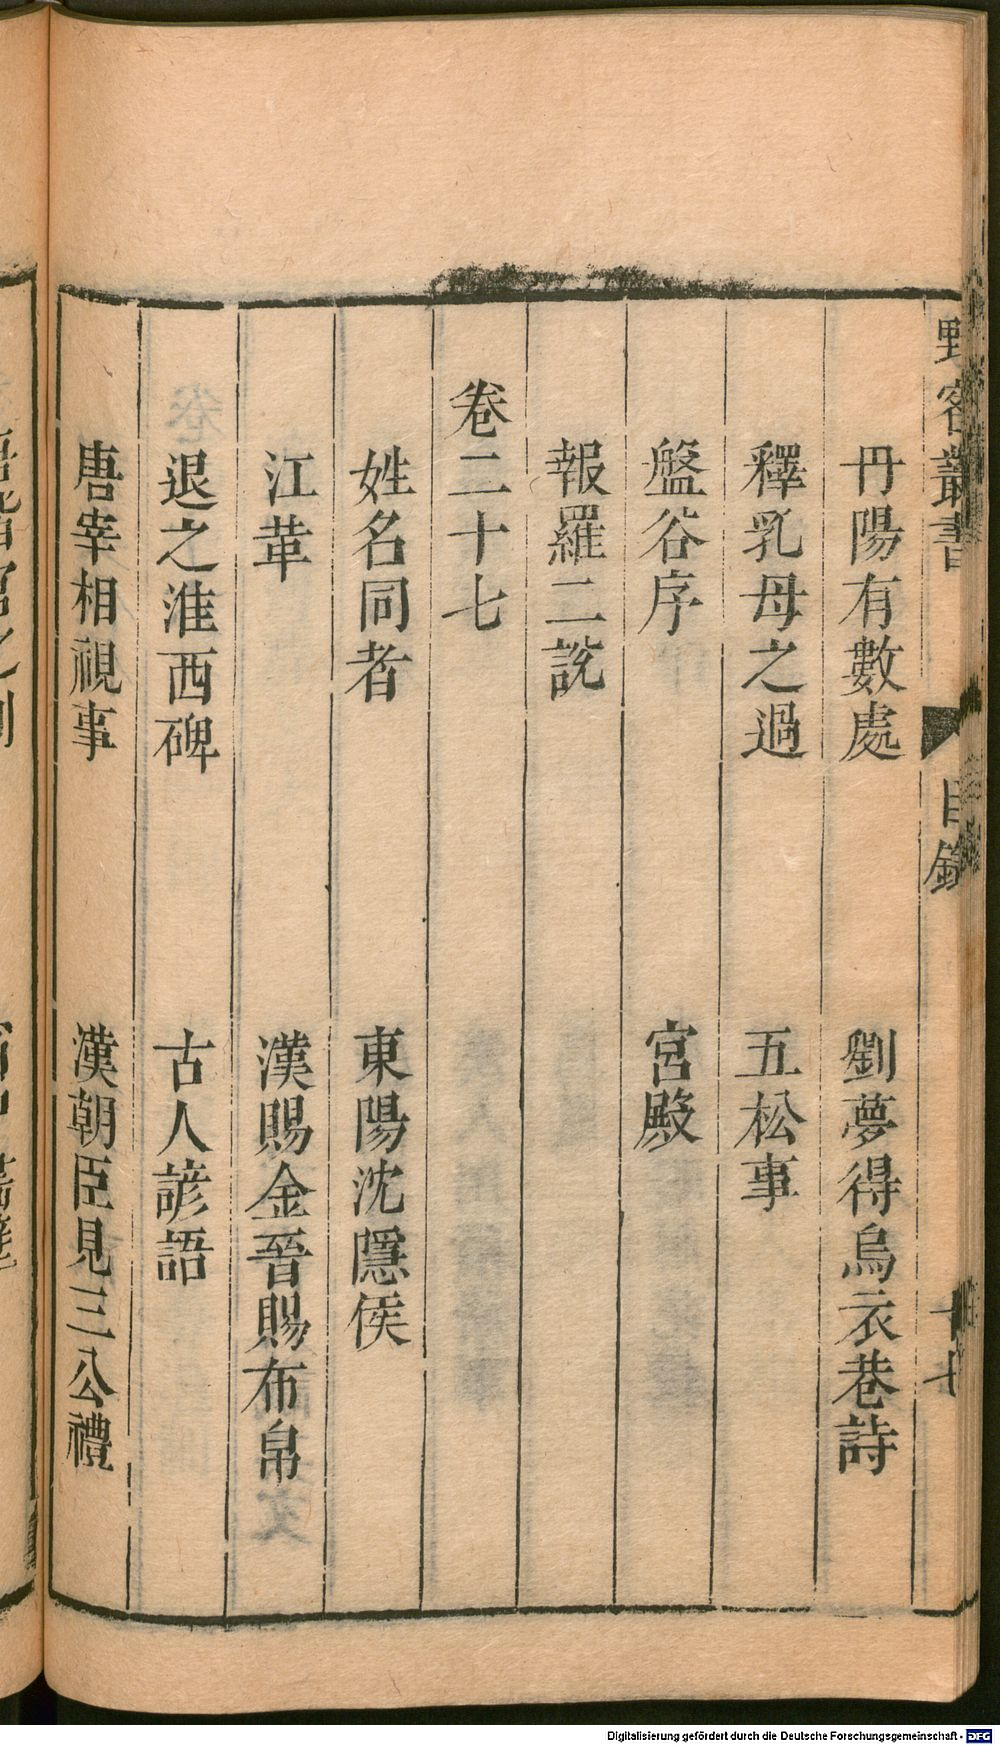 野客叢書 目錄 十七
丹陽有數處 劉夢得烏衣巷詩
釋乳母之過 五松事
盤谷序 宮殿
報羅二說
卷二十七
姓名同者 東陽沈隱侯
江革 漢賜金晉賜布帛
退之淮西碑 古人諺語
唐宰相視事 漢朝臣見三公禮
Digitalisierung gefördert durch die Deutsche Forschungsgemeinschaft - DFG